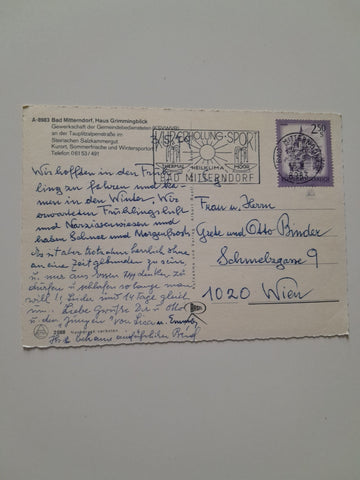 A-8983 Bad Mitterndorf, Haus Grimmingblick
Gewerkschaft der Gemeindebediensteten
an der Tauplitzalpenstraße im
Steirischen Salzkammergut
Kurort, Sommerfrische und Wintersportort
Telefon 06153/491
ERHOLUNG·SPORT
THERMAL HEILKLIMA MOOR
BAD MITTERNDORF
2.50
Wir hofften in den Früh-
ling zu fahren und ka-
men in den Winter. Wir
erwarteten Frühlingsluft
und Narzissenwiesen und
haben Schnee und Morgenfrost.
Es ist aber trotzdem herrlich ohne
an eine Zeit gebunden zu sein
u. nur ans Essen denken zu
dürfen u. schlafen so lange man
will!! Leider sind 14 Tage gleich
um. Liebe Grüße Dir u. Otto
u. den Jungen von
ausführlichen Brief
Frau u. Herrn
Grete und Otto Binder
Schmelzgasse 9
1020 Wien